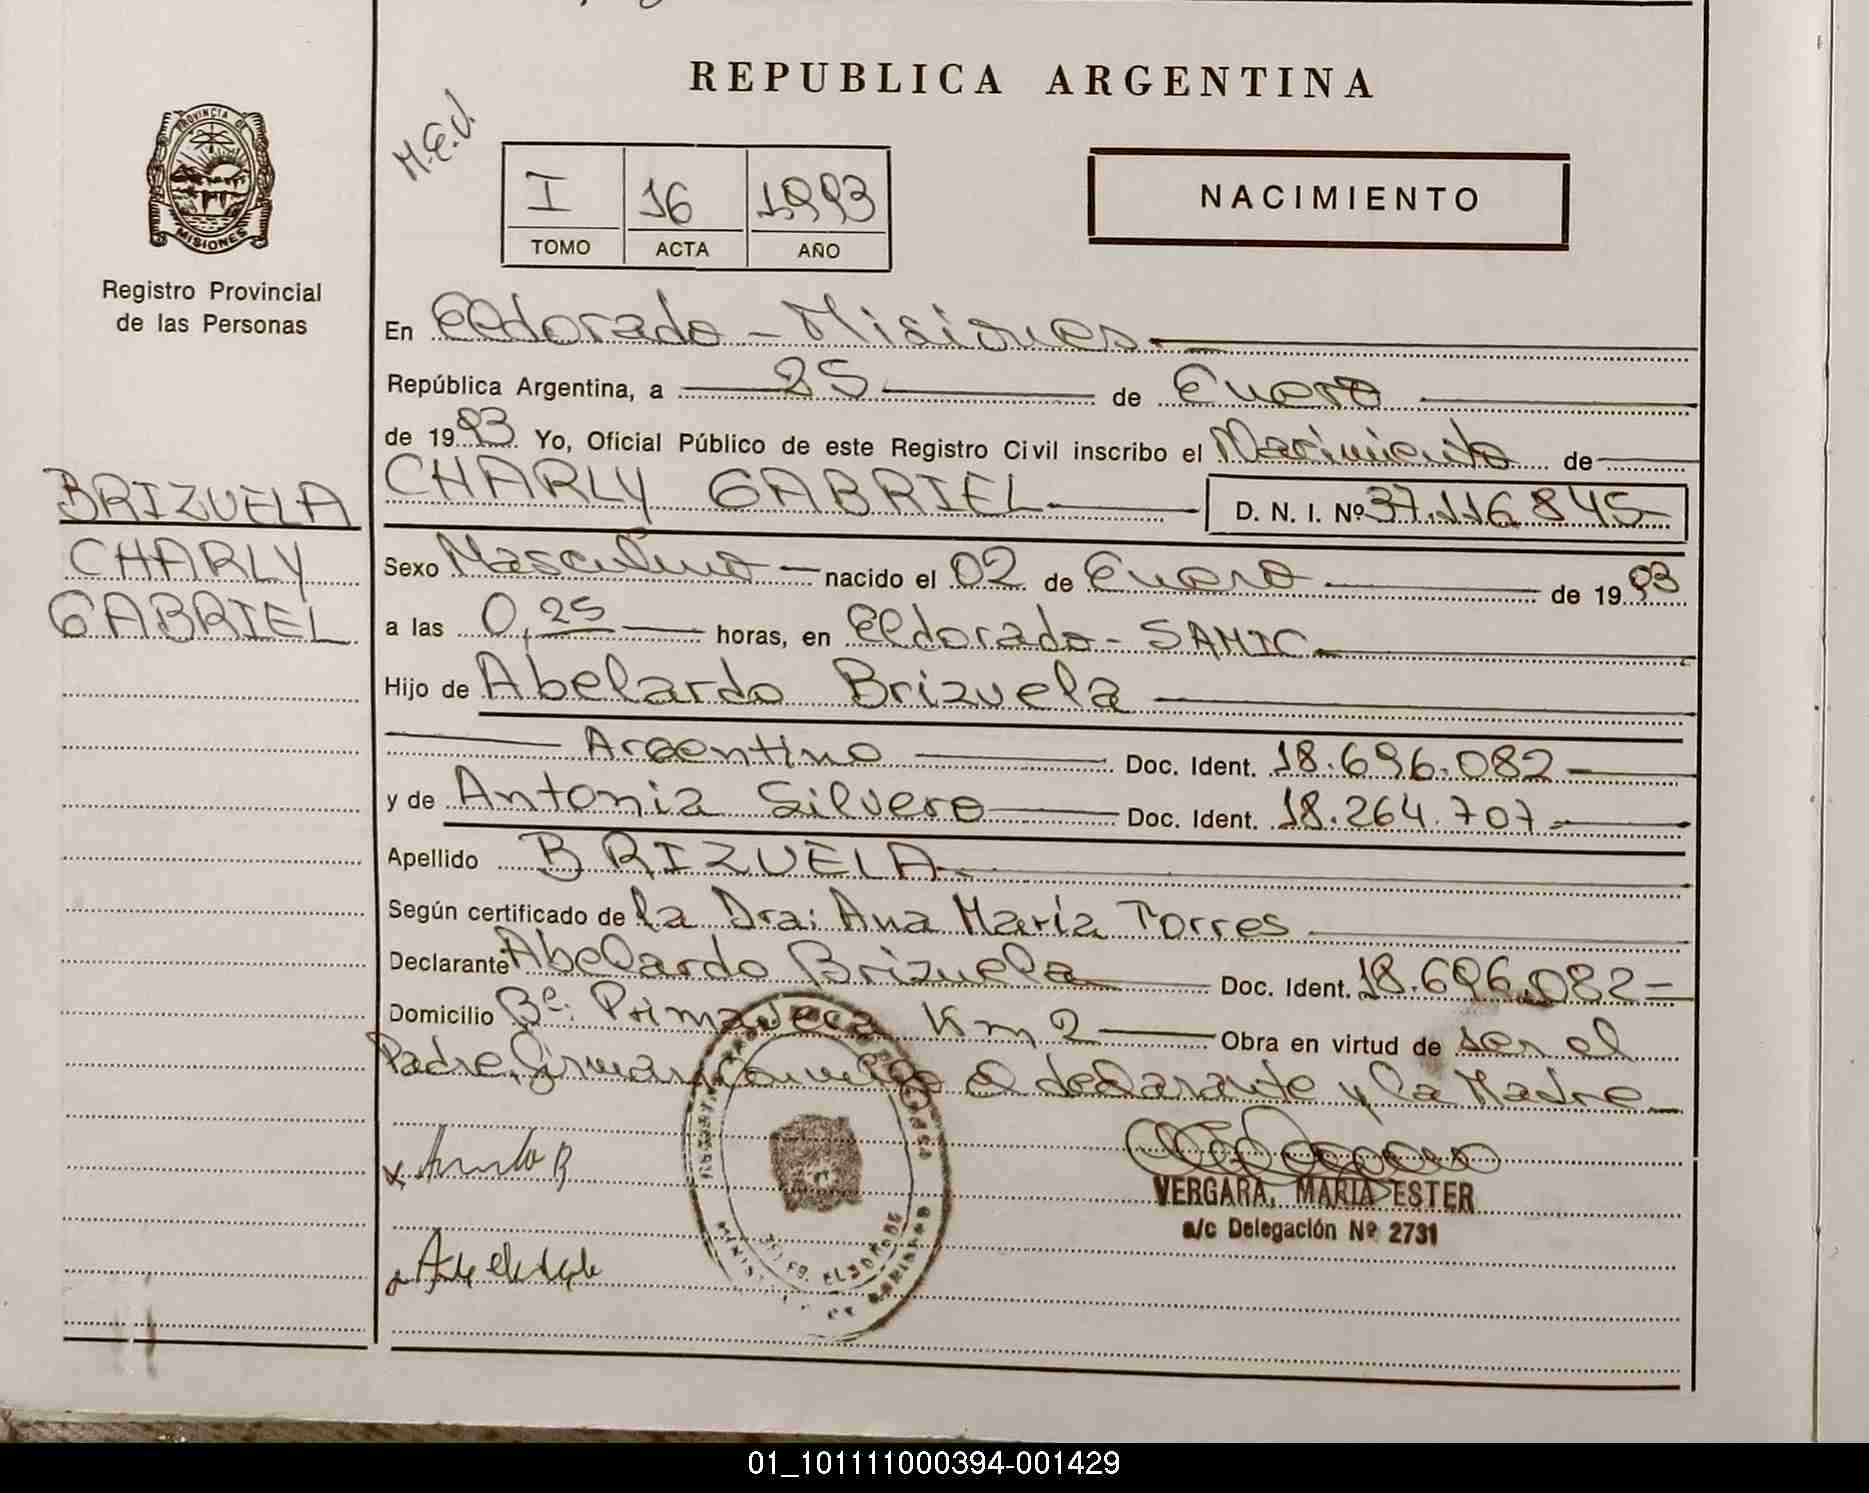 REPUBLICA ARGENTINA
M.E.V.
PROVINCIA DE
MISIONES
Registro Provincial
de las Personas
I 16 1993
TOMO ACTA AÑO
NACIMIENTO
En Eldorado - Misiones
República Argentina, a 25 de Enero
de 1993 Yo, Oficial Público de este Registro Civil inscribo el Nacimiento de
BRIZUELA
CHARLY
GABRIEL
CHARLY GABRIEL D. N. I. Nº 37.116.845-
Sexo Masculino nacido el 02 de Enero de 1993
a las 0,25 horas, en Eldorado - SAMIC
Hijo de Abelardo Brizuela
Argentino Doc. Ident. 18.696.082
y de Antonia Silvero Doc. Ident. 18.264.707
Apellido BRIZUELA
Según certificado de la Dra: Ana María Torres
Declarante Abelardo Brizuela Doc. Ident. 18.696.082-
Domicilio Bº: Primavera Km 2 Obra en virtud de ser el
Padre, firman conmigo el declarante y la Madre
VERGARA, MARIA ESTER
a/c Delegación Nº 2731
01_101111000394-001429